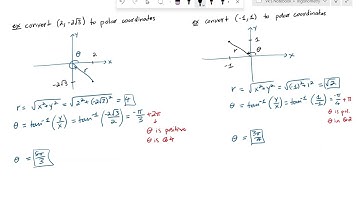 ex convert (2,-2√3) to polar coordinates
y
2
x
θ
r
-2√3
r = √x²+y² = √2²+(-2√3)² = 4
θ = tan⁻¹(y/x) = tan⁻¹(-2√3/2) = -π/3 +2π
θ is positive
θ is Q4
θ = 5π/3
ex convert (-1,1) to polar coordinates
y
1
θ
r
x
-1
r = √x²+y² = √(-1)²+1² = √2
θ = tan⁻¹(y/x) = tan⁻¹(1/-1) = -π/4 +π
θ in Q2
θ = 3π/4